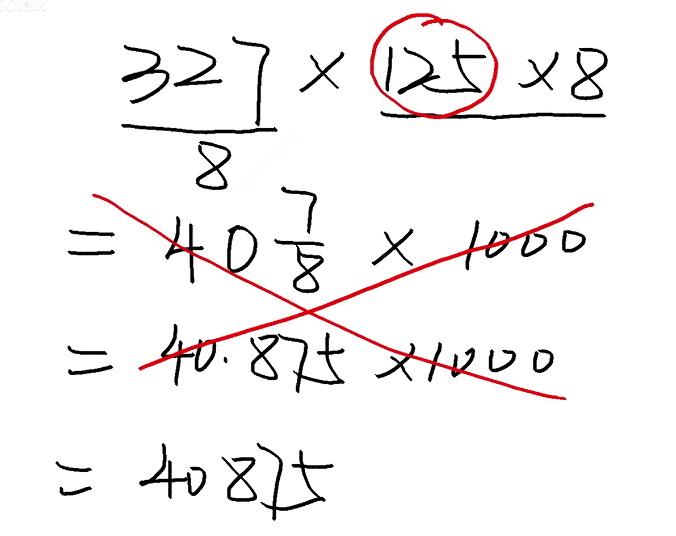 327/8 × 125 × 8
= 40 7/8 × 1000
= 40.875 × 1000
= 40875